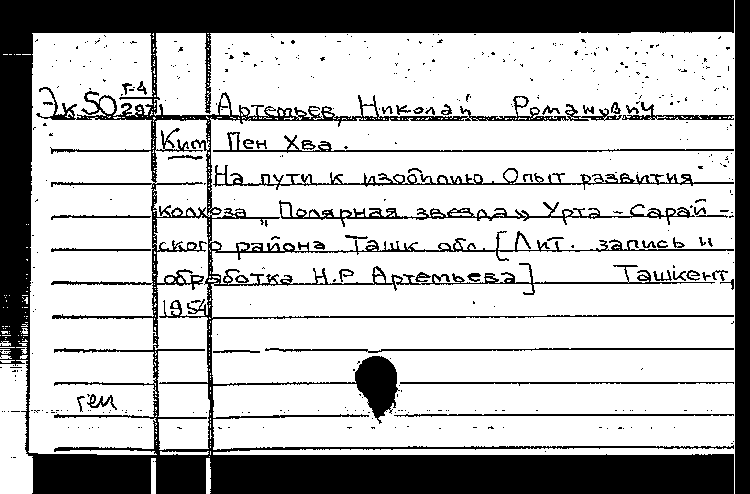 Эк50 Г-4/2971 Артемьев, Николай Романович
Ким Пен Хва.
На пути к изобилию. Опыт развития
колхоза „Полярная звезда" Урта-Сарай-
ского района Ташк обл. [Лит. запись и
обработка Н.Р. Артемьева] Ташкент,
1954